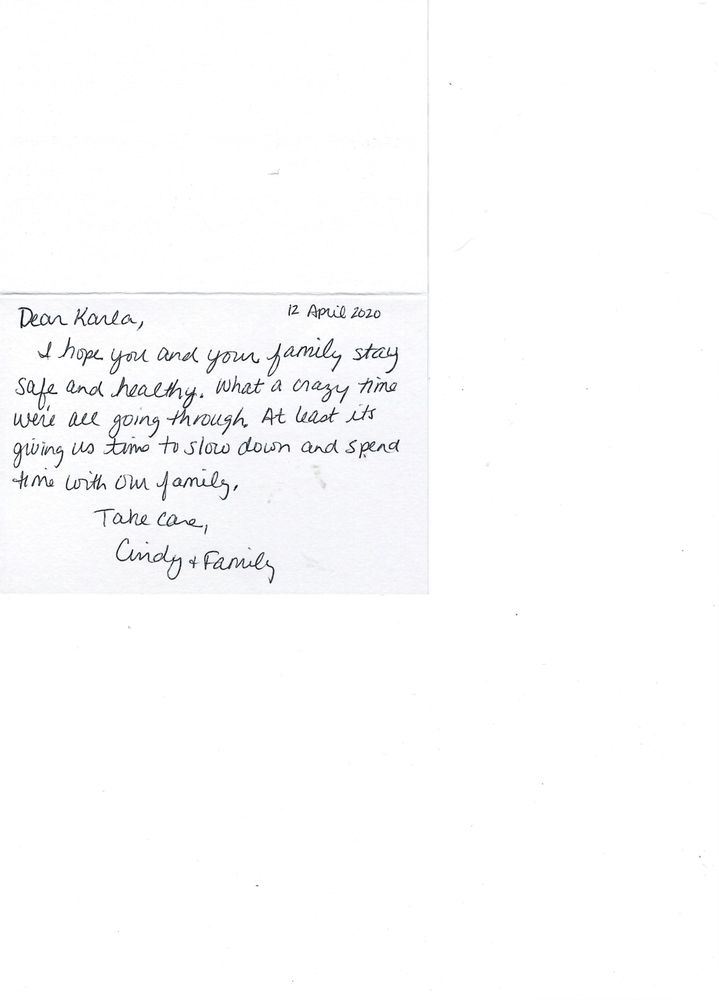 12 April 2020
Dear Karla,
I hope you and your family stay
safe and healthy. What a crazy time
we're all going through. At least its
giving us time to slow down and spend
time with our family.
Take care,
Cindy + Family